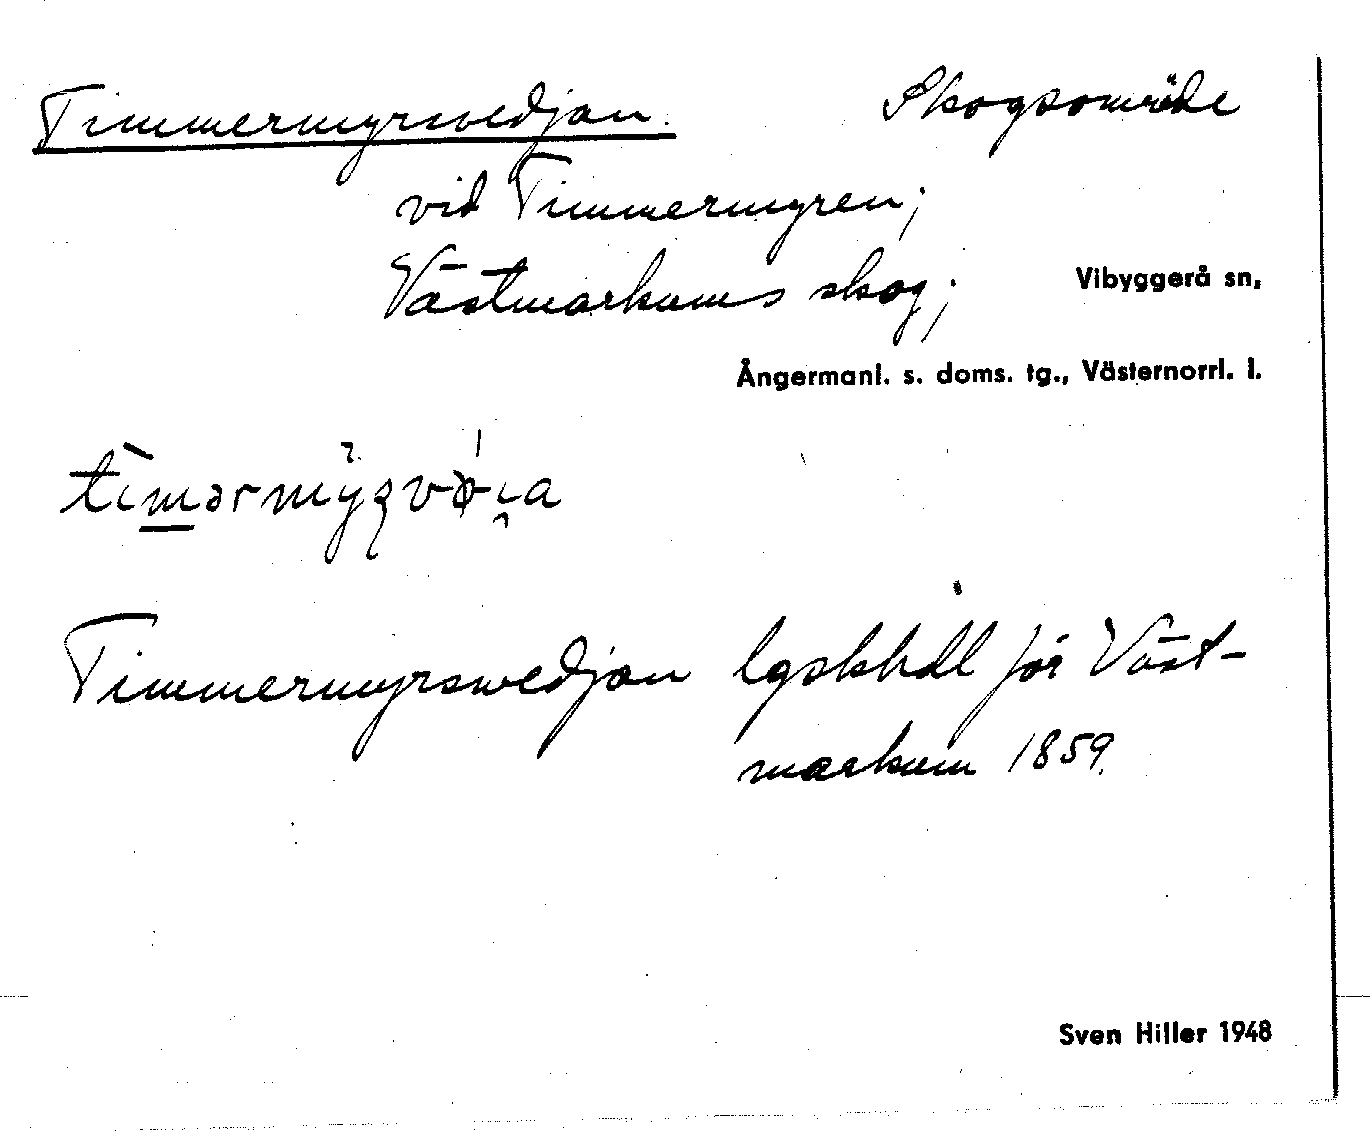 Timmermyrsvedjan. Skogsområde
vid Timmermyren;
Västmarkums skog;
Vibyggerå sn,
Ångermanl. s. doms. tg., Västernorrl. l.
Timmermyrswedjan lgskhdl för Väst-
markum 1859.
Sven Hiller 1948